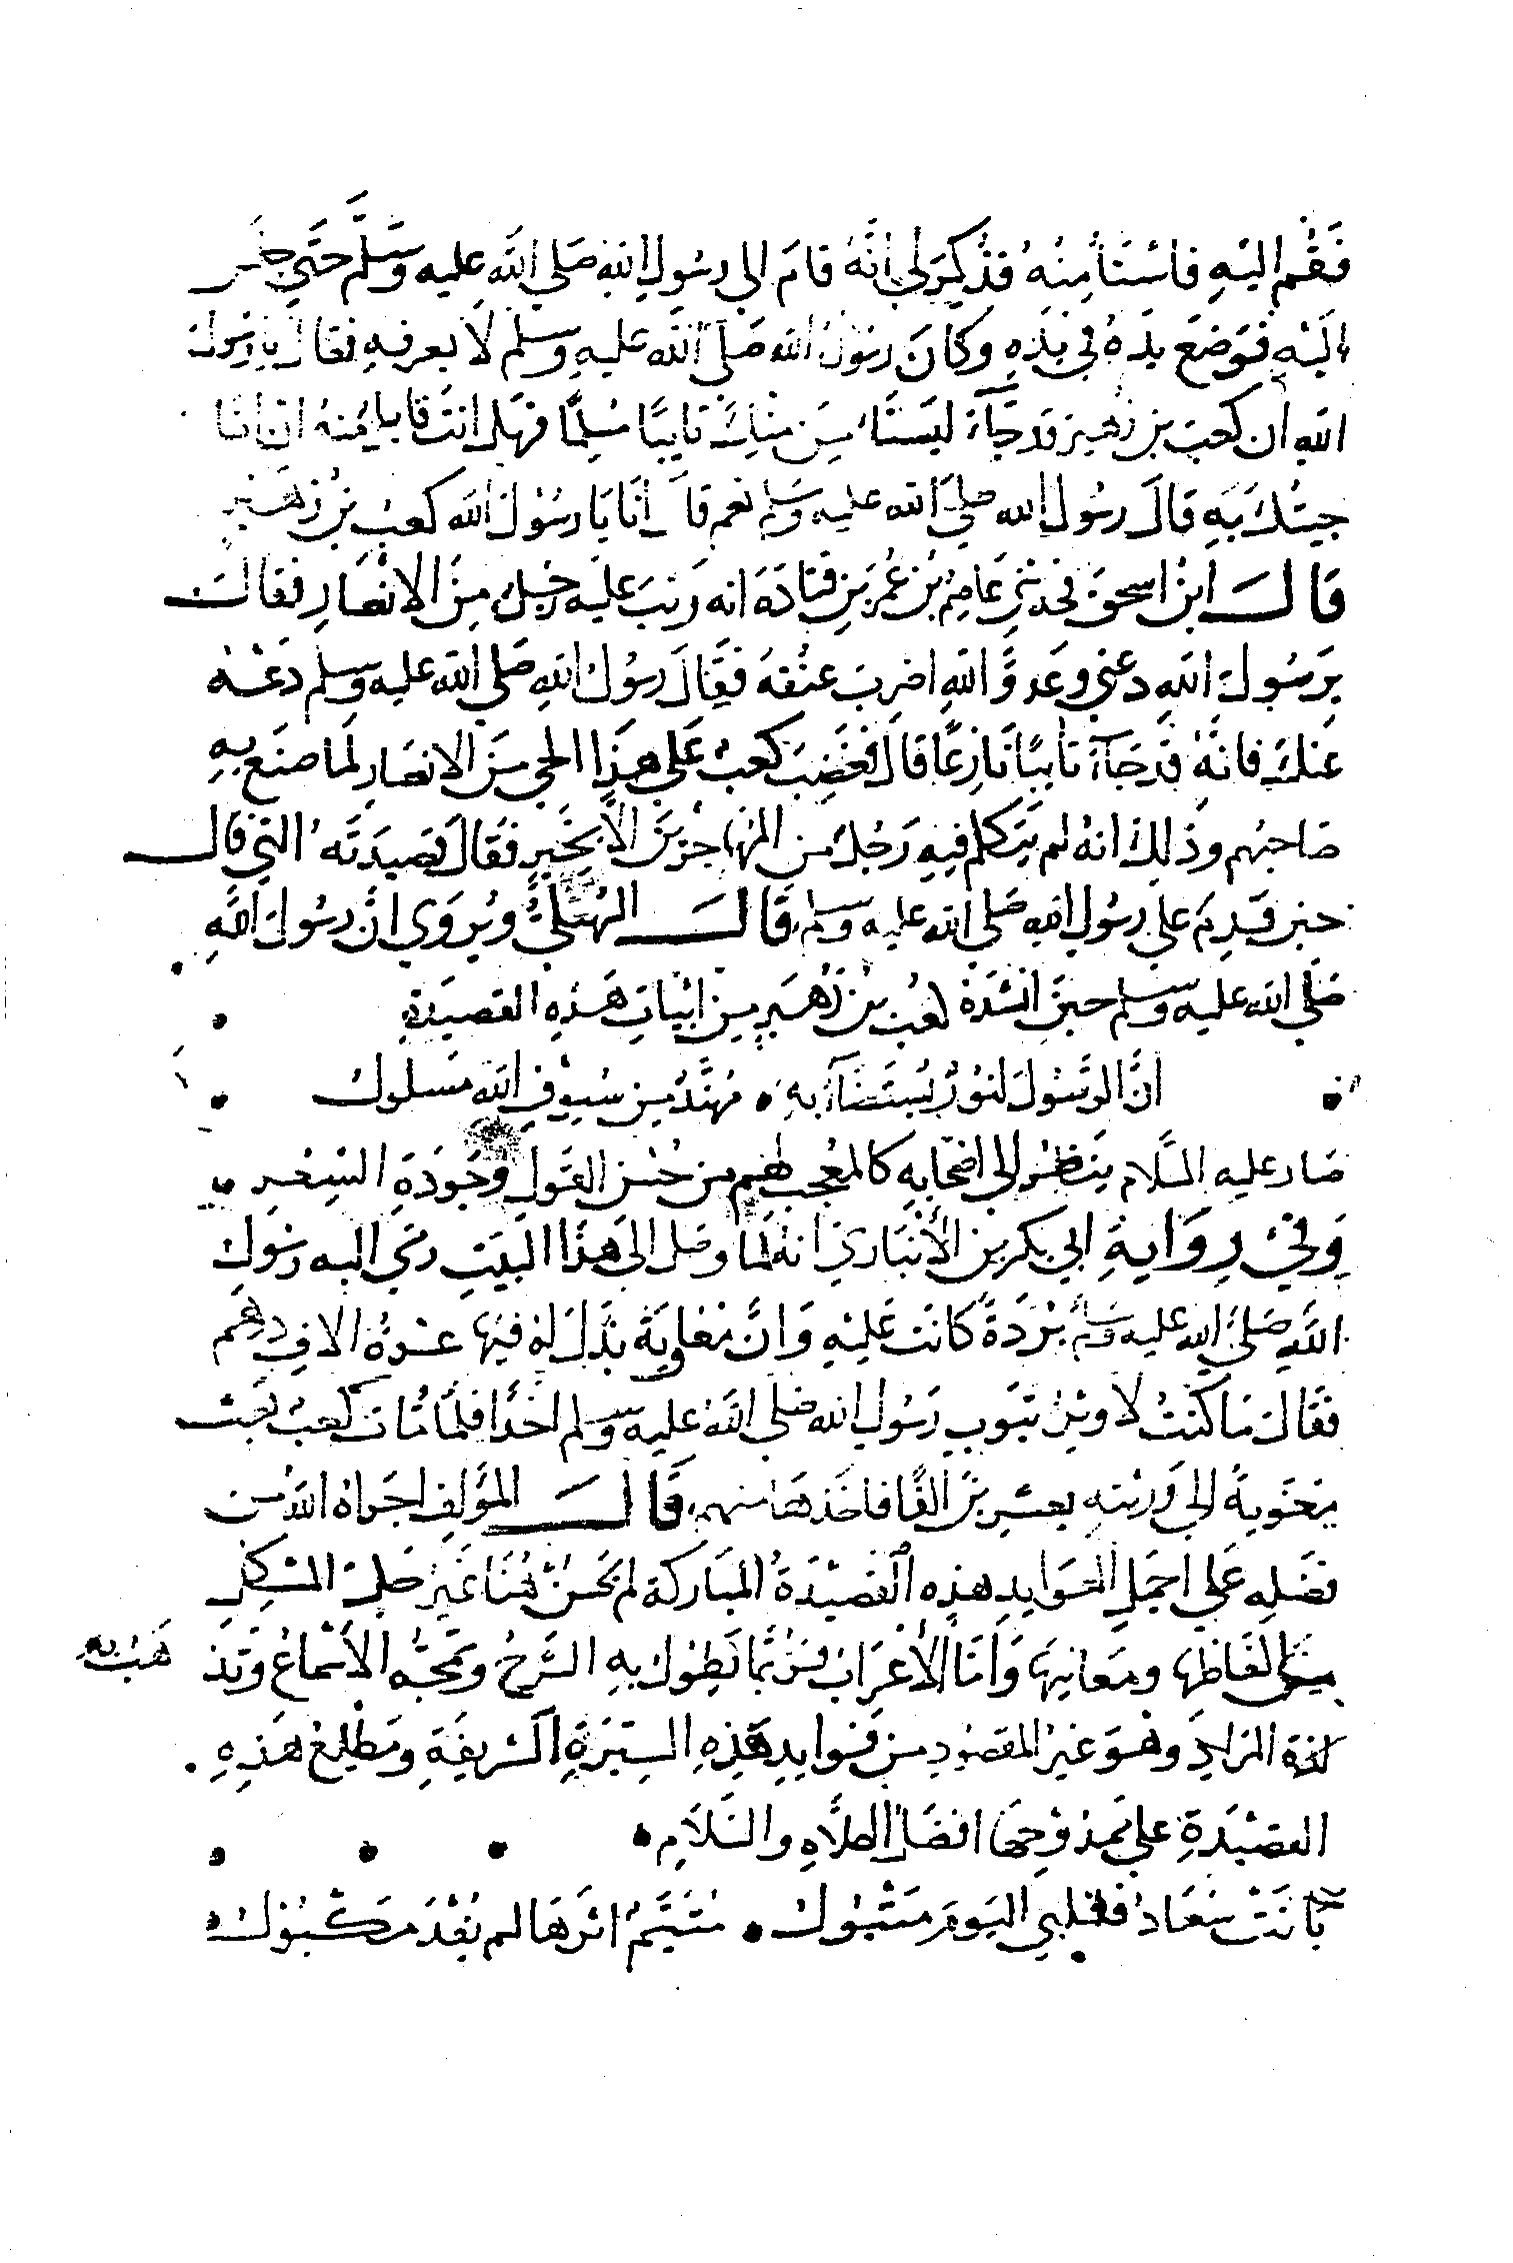 فَقُم اليْهِ فاسْتَأمِنْهُ فذُكِرَ لي انَّهُ قامَ الي رسُولِ اللهِ صَلي اللَّه عليه وسَلَّم حتَّي جلس
اليْهِ فوَضعَ يدَهُ في يَدِهِ وكانَ رسُولُ الله صَلي اللَّه عليهِ وسلم لا يعرفهِ فقال يا رسُولَ
اللهِ ان كعبَ بن زهير قد جَآءَ ليَستَأمِنَ مِنكَ تايبًا مُسلِمًا فهَل انتَ قابل مِنهُ ان انا
جيتُكَ بهِ قالَ رسُول الله صَلي الله عليه وسَلم نعم قالَ انَا يَا رسُولَ الله كعبُ بنُ زُهَيْر
قَالَ ابنُ اسحق فحدثني عَاصِمُ بنُ عُمرَ بنِ قتادَةَ انه وَثبَ عليه رجُلٌ مِنَ الانْصَارِ فقالَ
يرَسُولَ اللهِ دعني وعَدوَّ اللهِ اضرِبَ عنُقهَ فقَالَ رسُولُ اللهِ صَلي اللَّه عليه وسلم دَعْهُ
عَنكَ فانَّهُ قَد جَآءَ تايبًا نَازِعًا قالَ فغَضِبَ كعبٌ عَلي هذَا الحي مِنَ الانصَارِ لما صنَع بهِ
صَاحبُهم وذَلكَ انهُ لم يتكلم فيهِ رَجُلٌ من المُهاجِرينَ الَّا بخَيرٍ فقَالَ قصِيدَتَه التي قالَ
حين قَدِمَ علي رسُولِ اللهِ صَلي الله عليه وسلم قَالَ السُهَيليُّ ويُروَي انَّ رسُولَ اللَّهِ
صَلَّي الله عليه وسلم حينَ انشَدَهُ كعبُ بنُ زُهَيرٍ مِن ابيَاتِ هَذِهِ القصِيدَةِ
انَّ الرسُولَ لنُورٌ يُستَضَآءُ بهِ • مُهنَّدٌ مِن سُيُوفِ اللهِ مَسلولُ
صَار عليه السَّلام ينظرُ الي اصحَابِهِ كالمعُجِب لهُم من حُسْنِ القَولِ وجُودَةِ الشِعْرِ
وَفي رِوَايةِ ابي بكر بن الأنبَاري انهُ لمَّا وصَل الي هَذا البَيتِ رمَي اليه رسُولُ
اللَّهِ صَلَّي الله عليه وسلم بُرْدَةً كانَت عَليْهِ وَانَّ مُعَاويَةَ بذَلَ لهُ فيهَا عشرةُ الافِ درهَم
فقَالَ مَا كنتُ لاوثِرَ بثَوبِ رَسُولِ الله صَلي اللَّهُ عليه وسلم احَدًا فلمَّا مَاتَ كَعبٌ بَعَثَ
معَويةُ الي وَرثتهِ بعشرينَ الفًا فاخَذهَا منهم قَالَ المؤلفِ اجراهُ اللَّهُ من
فضَلِهِ عَلي اجمَلِ العَوايدِ هذِهِ القصِيْدَةُ المبَاركة لم يحَسُنْ هُنَا غَيرُ حَلِّ المشكِلِ
مِن الفَاظِهَا ومعَانيهَا وَامَّا الأعْرَابُ فرُبمَّا يَطُولُ بهِ الشرحُ وتمُجهُ الأسْماعُ وتَذهَبُ به
لذة المرَادِ وهُوَ غيرُ المقصُودِ من فوايدِ هَذِهِ السِيَرةِ الشريفَةِ ومَطْلعُ هَذِهِ
القصِيْدَةِ علي ممَدوْحِهَا افضَلُ الصَّلاةِ والسَلَامِ •
بَانَتْ سُعَادُ فقَلبي اليَومَ مَتْبُولُ • مُتَيَّمٌ اثرَهَا لم يُفْدَ مَكْبُولُ •